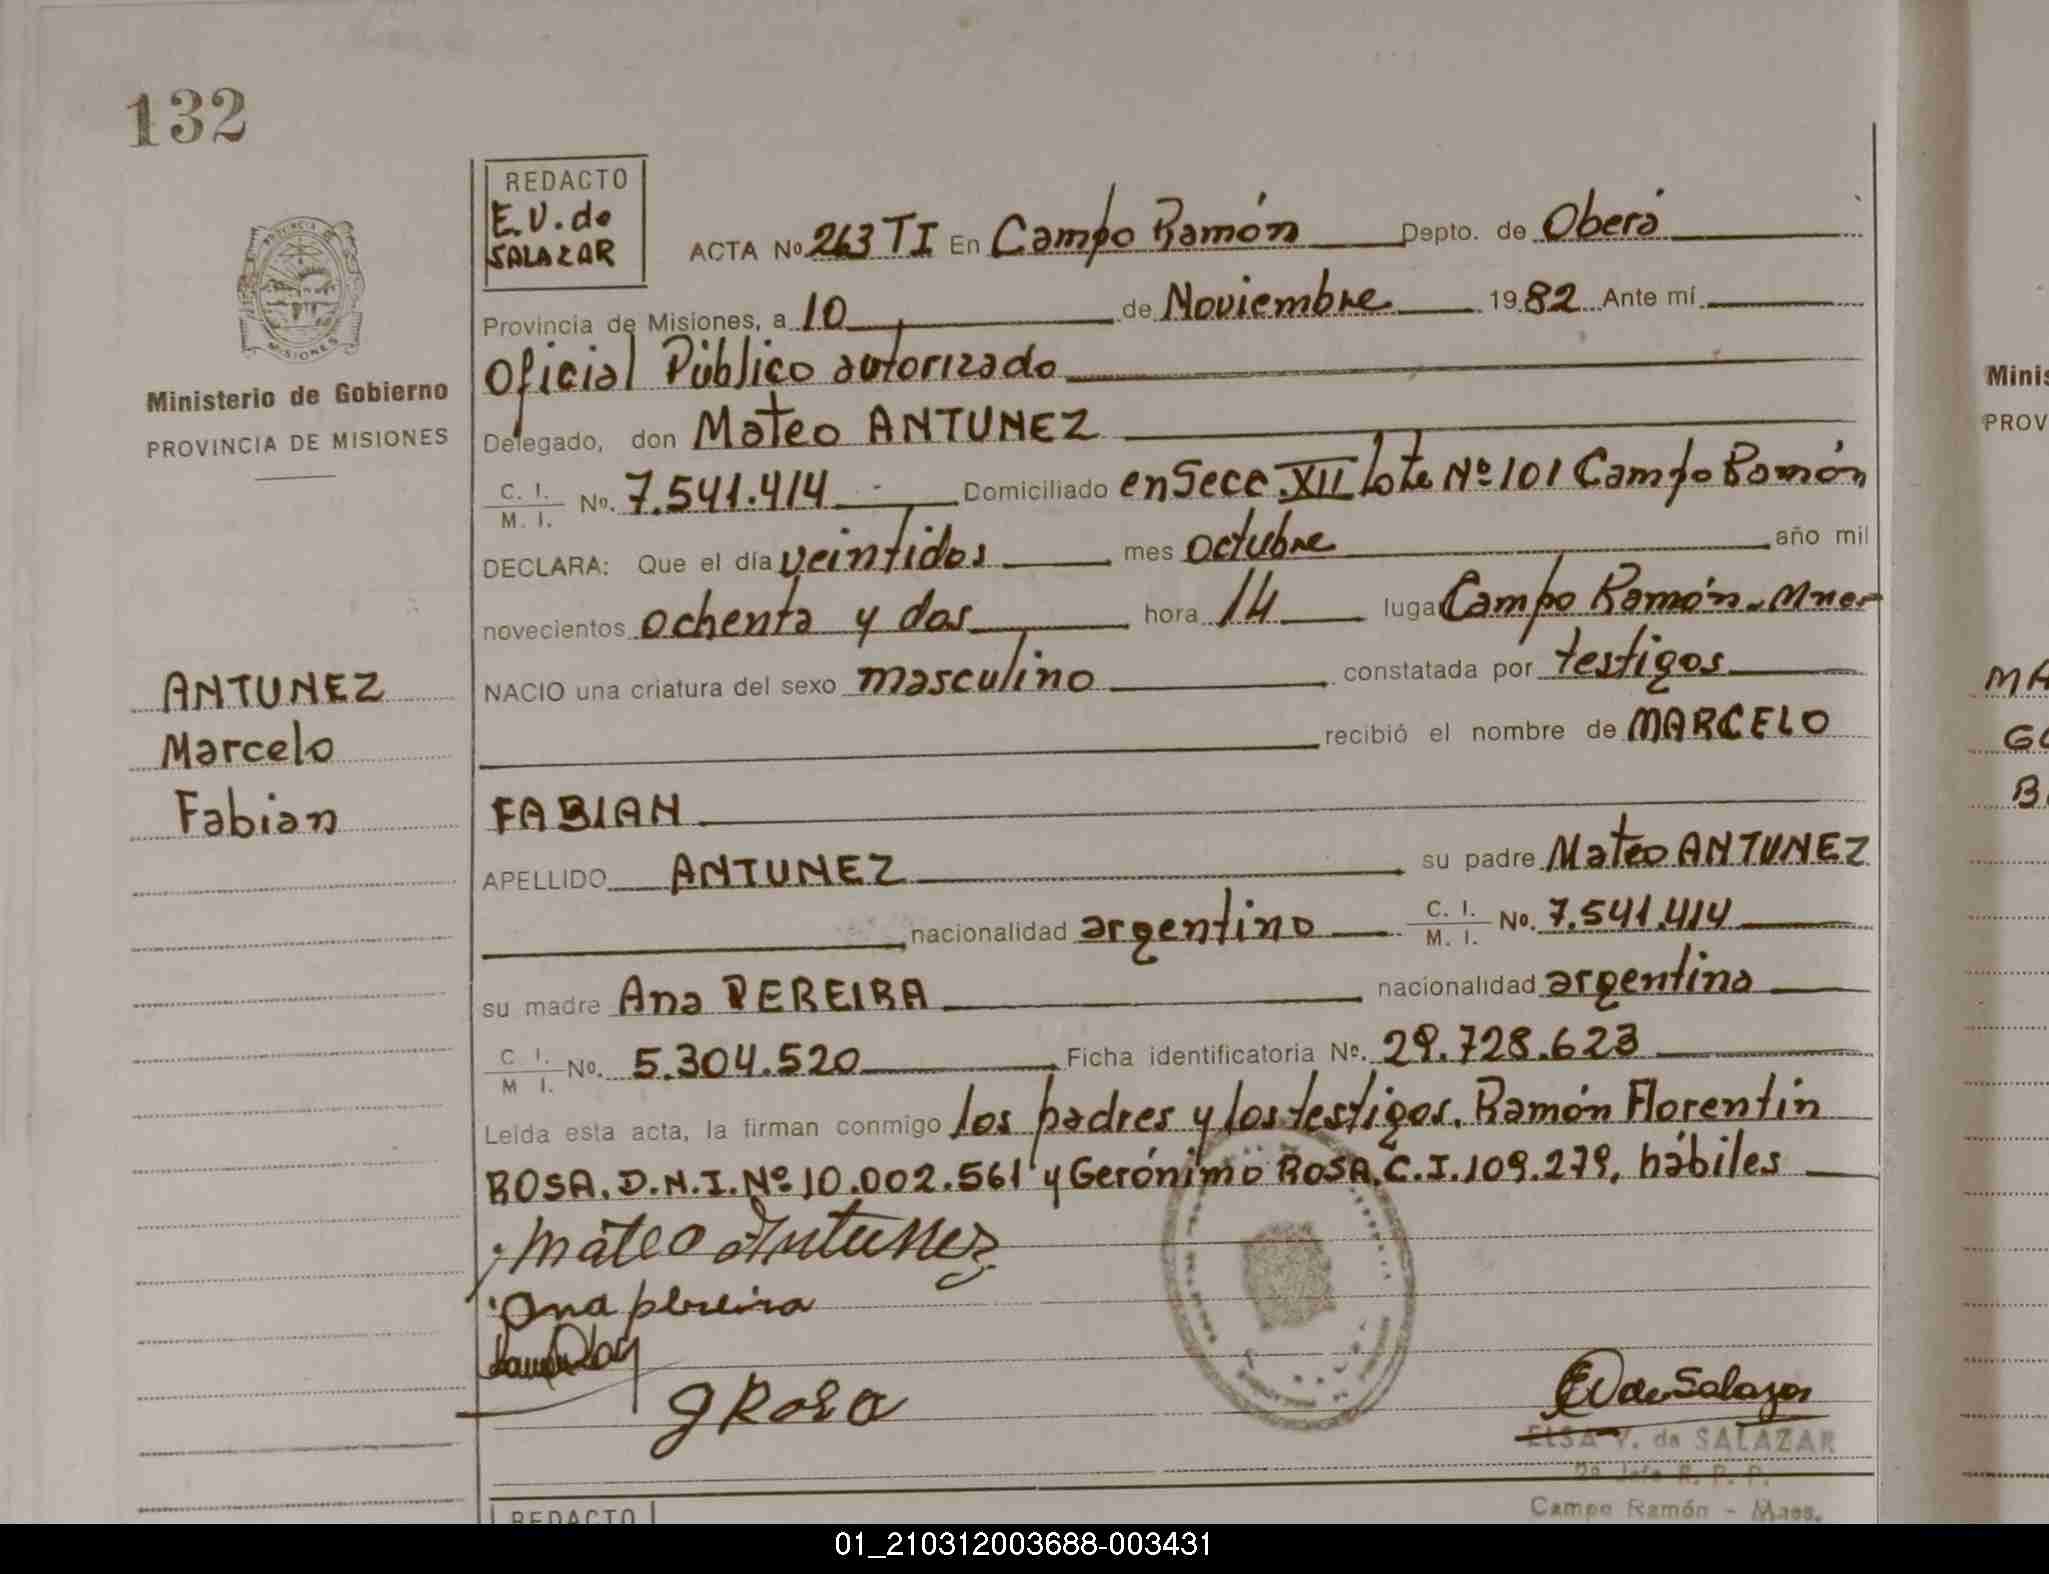 132
REDACTO
E.V. de
SALAZAR
ACTA Nº 263 TI En Campo Ramón Depto. de Oberá
Provincia de Misiones, a 10 de Noviembre 1982 Ante mí
Oficial Público autorizado
Ministerio de Gobierno
PROVINCIA DE MISIONES
Delegado, don Mateo ANTUNEZ
C. I. / M. I. Nº. 7.541.414 Domiciliado en Secc. XII lote Nº 101 Campo Ramón
DECLARA: Que el día veintidos mes octubre año mil
novecientos ochenta y dos hora 14 lugar Campo Ramón - Mnes
NACIO una criatura del sexo masculino constatada por testigos
recibió el nombre de MARCELO
FABIAN
ANTUNEZ
Marcelo
Fabian
APELLIDO ANTUNEZ su padre Mateo ANTUNEZ
nacionalidad argentino C. I. / M. I. Nº. 7.541.414
su madre Ana PEREIRA nacionalidad argentina
C I. / M I. Nº. 5.304.520 Ficha identificatoria Nº. 29.728.623
Leída esta acta, la firman conmigo los padres y los testigos. Ramón Florentin
ROSA. D.N.I. Nº 10.002.561 y Gerónimo ROSA. C.I. 109.279, hábiles
Mateo Antunez
Ana pereira
G Rosa
EV de Salazar
ELSA V. de SALAZAR
Campo Ramón - Mnes.
REDACTO
Minis
PROV
MA
GO
01_210312003688-003431